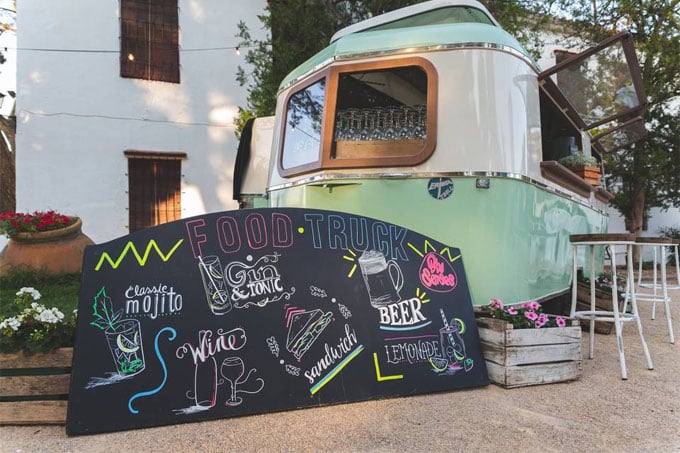 FOOD·TRUCK
classic
mojito
Gin
& TONIC
Wine
sandwich
BEER
LEMONADE